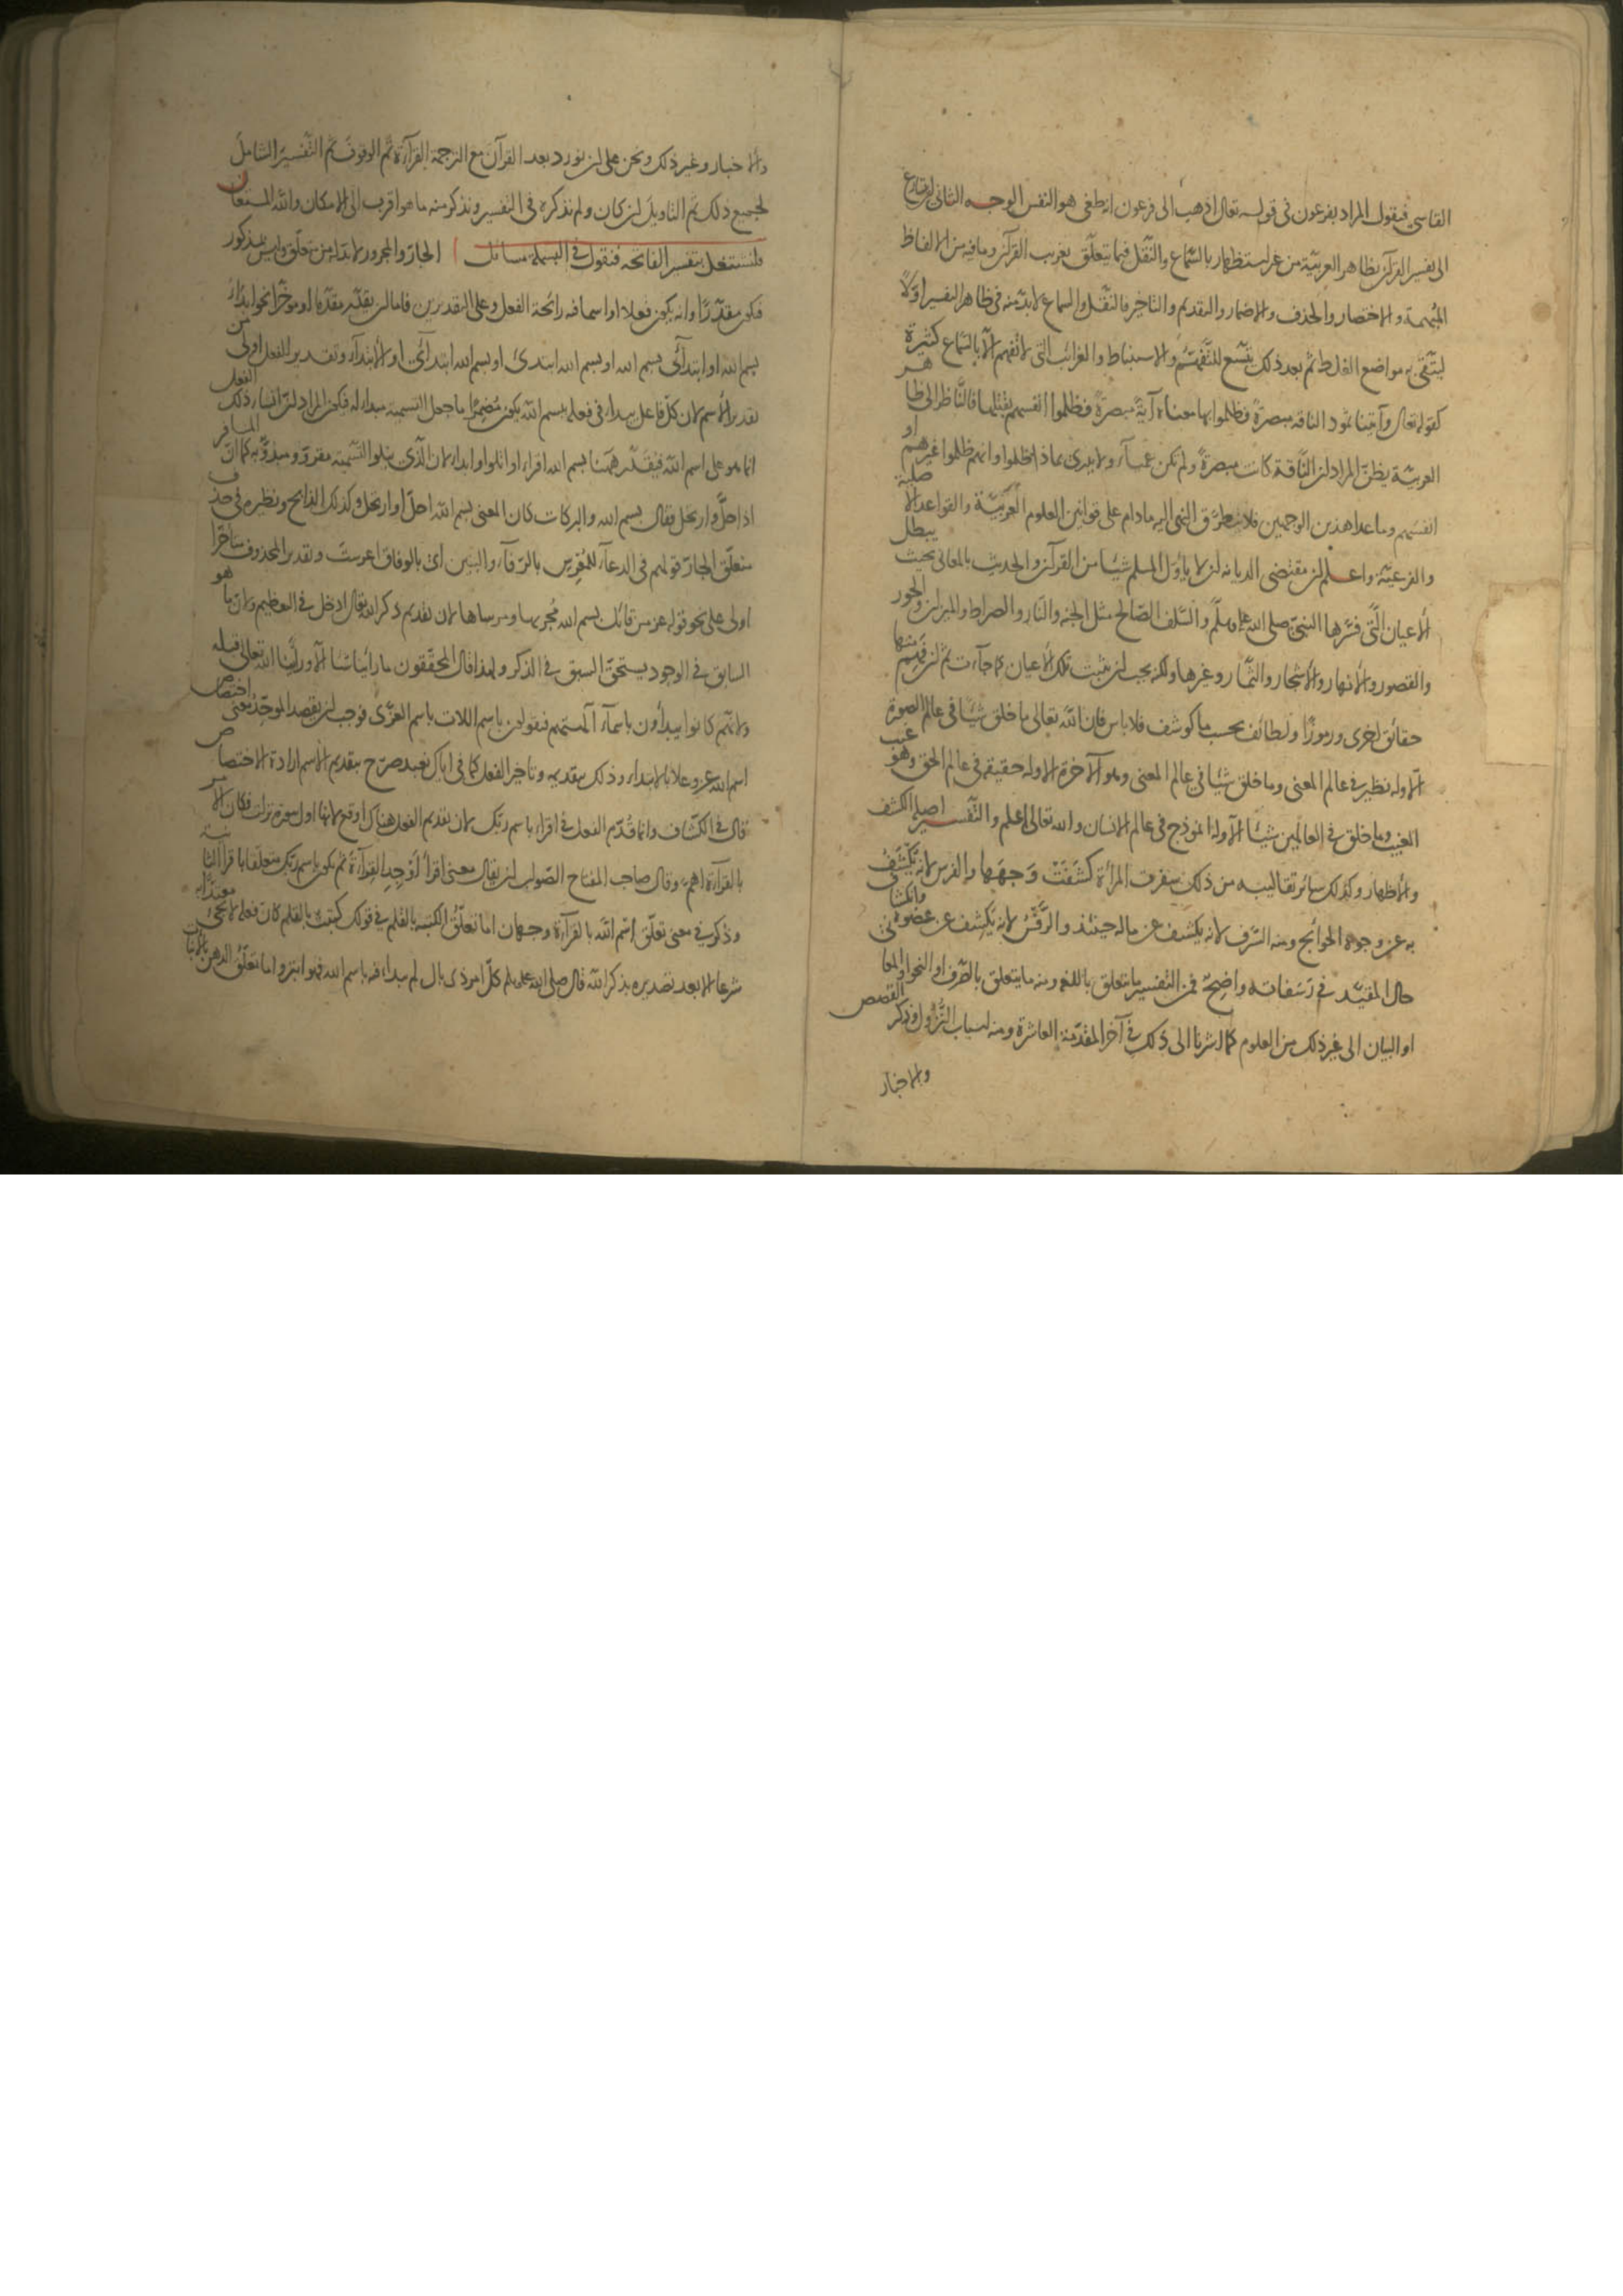 القاسي فيقول المراد بفرعون في قوله تعالى اذهب الى فرعون انه طغى هو النفس الوجه الثاني ان يتسارع
الى تفسير القرآن بظاهر العربية من غير استظهار بالسماع والنقل فيما يتعلق بغريب القرآن وما فيه من الالفاظ
المبهمة والاختصار والحذف والاضمار والتقديم والتاخير فالنقل والسماع لا بد منه في ظاهر التفسير اولا
ليتقى به مواضع الغلط ثم بعد ذلك يتسع للتفهم والاستنباط والغرائب التي لا تفهم الا بالسماع كثيرة
كقوله تعالى وآتينا ثمود الناقة مبصرة فظلموا بها معناه آية مبصرة فظلموا انفسهم بقتلها فالناظر الى ظاهر
العربية يظن المراد ان الناقة كانت مبصرة ولم تكن عمياء ولا يدرى بماذا ظلموا وانهم ظلموا غيرهم او
انفسهم وما عدا هذين الوجهين فلا يتطرق النهي اليه ما دام على قوانين العلوم العربية والقواعد الاصلية
والفرعية واعلم ان مقتضى الديانة ان لا يأول المسلم شيئا من القرآن والحديث بالمعاني بحيث يبطل
الأعيان التي فسرها النبي صلى الله عليه وسلم والسلف الصالح مثل الجنة والنار والصراط والميزان والحور
والقصور والأنهار والأشجار والثمار وغيرها ولكنه يجب ان يثبت تلك الأعيان كما جاءت ثم ان فهم منها
حقائق اخرى ورموزا ولطائف بحسب ما كوشف فلا باس فان الله تعالى ما خلق شيئا في عالم الصورة
الا وله نظير في عالم المعنى وما خلق شيئا في عالم المعنى وهو الآخرة الا وله حقيقة في عالم الحق وهو غيب
الغيب وما خلق في العالمين شيئا الا وله انموذج في عالم الانسان والله تعالى اعلم والتفسير اصله الكشف
والأظهار وكذلك سائر تقاليبه من ذلك سفرت المرأة كشفت وجهها والفرس لانه يكشف
به عن وجوه الحوائج ومنه السرف لانه يكشف عن ماله حينئذ والرفس لانه يكشف عن عضوه وانكشاف
حال المقيد في رسفانه واضح فمن التفسير ما يتعلق باللغة ومنه ما يتعلق بالصرف او النحو او المعاني
او البيان الى غير ذلك من العلوم كما اشرنا الى ذلك في آخر المقدمة العاشرة ومنه اسباب النزول وذكر القصص
والاخبار
والاخبار وغير ذلك ونحن على ان نورد بعد القرآن مع الترجمة القراءة ثم الوقوف ثم التفسير الشامل
لجميع ذلك ثم التاويل ان كان ولم نذكره في التفسير ونذكر منه ما هو اقرب الى الامكان والله المستعان
فلنشتغل بتفسير الفاتحة فنقول في البسملة مسائل ا الجار والمجرور لا بد له من متعلق وليس بمذكور
فيكون مقدرا وانه يكون فعلا او اسما فيه رائحة الفعل وعلى التقديرين فاما ان يقدر مقدما او مؤخرا نحو ابتداء
بسم الله او ابتدائي بسم الله او بسم الله ابتدئ او بسم الله ابتدائي او الابتداء وتقدير الفعل اولى من
تقدير الأسم لان كل فاعل يبداء في فعله ببسم الله يكون مضمرا ما جعل التسمية مبداء له فيكون المراد ان انشاء ذلك الفعل
انما هو على اسم الله فيقدر ههنا بسم الله اقراء او اتلوا او ابداء لان الذي يتلوا التسمية مقروء ومبدوء به كما ان المسافر
اذا حل وارتحل فقال بسم الله والبركات كان المعنى بسم الله احل او ارتحل وكذلك الذابح ونظيره في حذف
متعلق الجار قولهم في الدعاء للمعرس بالرفاء والبنين اي بالوفاق اعرست وتقدير المحذوف متأخرا
اولى على نحو قوله عز من قائل بسم الله مجريها ومرساها لان تقديم ذكر الله تعالى ادخل في التعظيم ولان ما هو
السابق في الوجود يستحق السبق في الذكر ولهذا قال المحققون ما رأينا شيئا الا ورأينا الله تعالى قبله
ولانهم كانوا يبدأون باسماء آلهتهم فيقولون باسم اللات باسم العزى فوجب ان يقصد الموحد معنى اختصاص
اسم الله عز وعلا بالابتداء وذلك بتقديمه وتاخير الفعل كما في اياك نعبد صرح بتقديم الأسم ارادة الاختصاص
قال في الكشاف وانما قدم الفعل في اقراء باسم ربك لان تقديم الفعل هناك اوقع لانها اول سورة نزلت فكان الامر
بالقراءة اهم وقال صاحب المفتاح الصواب ان يقال معنى اقرأ اوجد القراءة ثم يكون باسم ربك متعلقا باقرأ الثانية
وذكر في معنى تعلق اسم الله بالقراءة وجهان اما تعلق الكتبة بالقلم في قولك كتبت بالقلم كان فعله لا يجئ معتدا به
شرعا الا بعد تصديره بذكر الله قال صلى الله عليه وسلم كل امر ذي بال لم يبداء فيه باسم الله فهو ابتر واما تعلق الدهن بالانبات